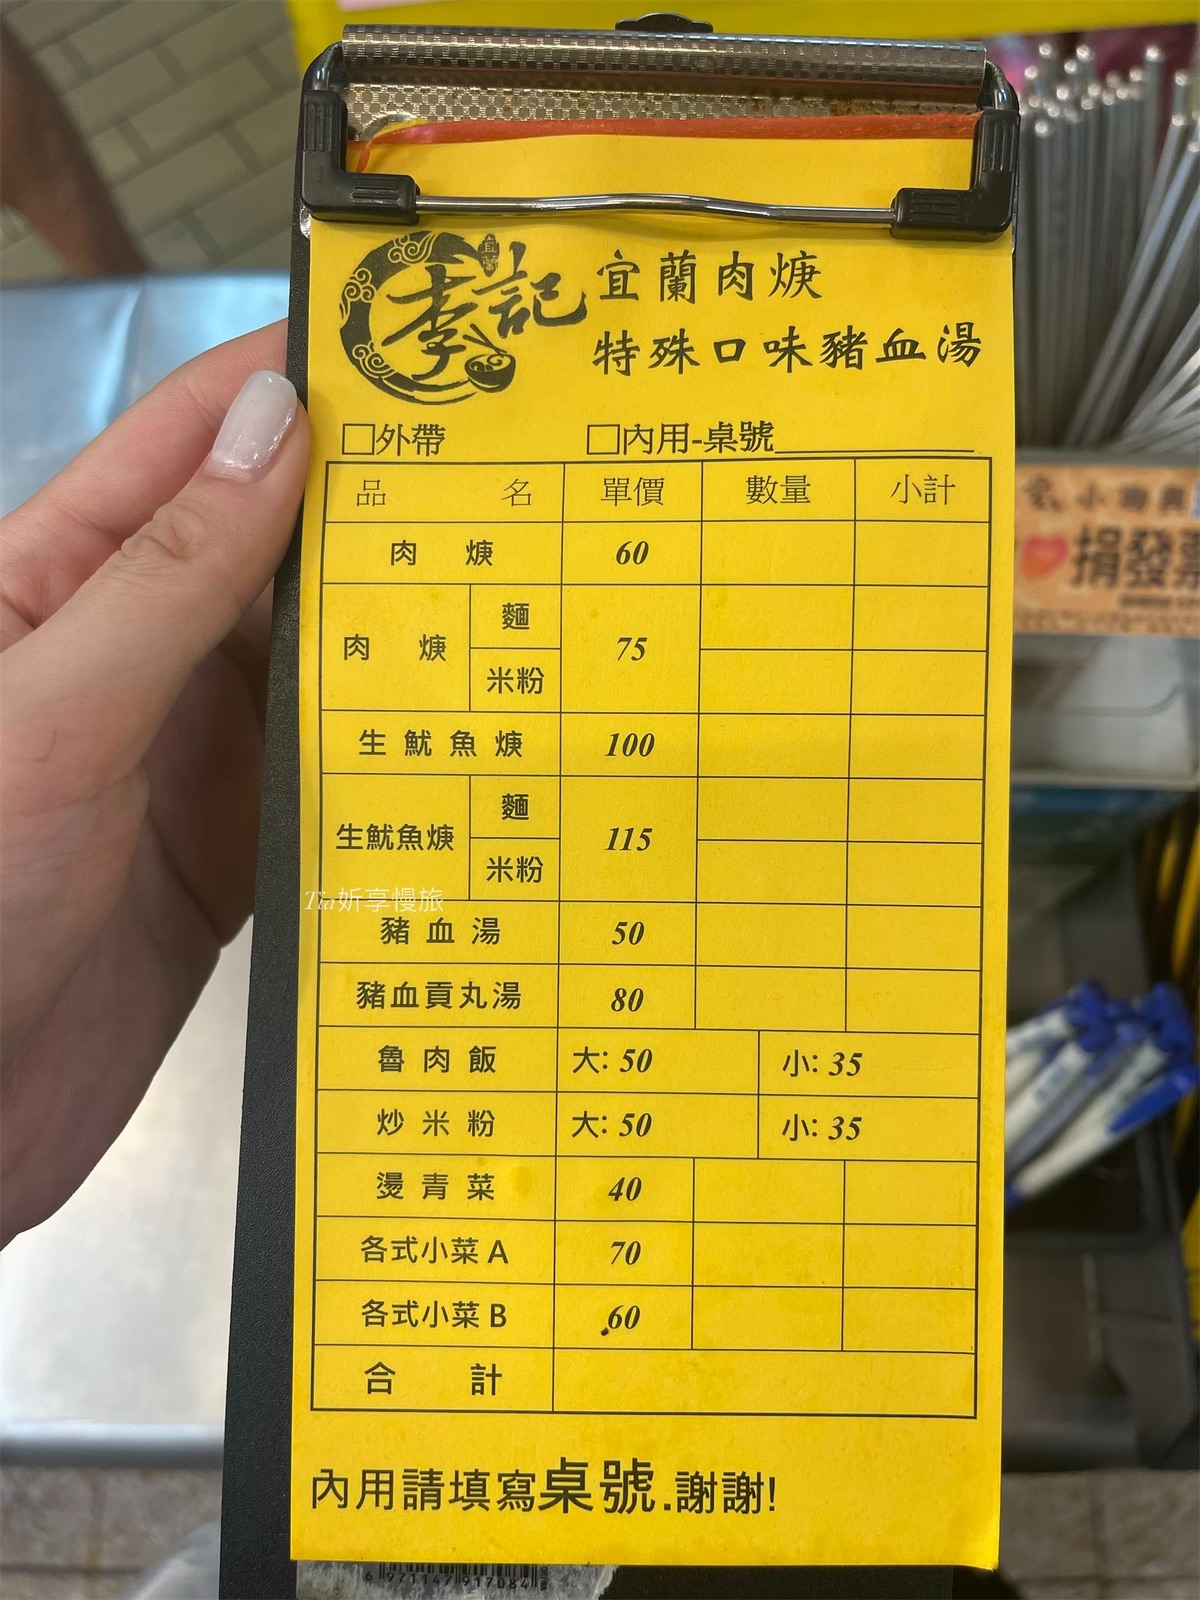 宜蘭
李記
宜蘭肉焿
特殊口味豬血湯
□外帶 □內用-桌號
品名 單價 數量 小計
肉焿 60
肉焿 麵 75
米粉
生魷魚焿 100
生魷魚焿 麵 115
米粉
豬血湯 50
豬血貢丸湯 80
魯肉飯 大: 50 小: 35
炒米粉 大: 50 小: 35
燙青菜 40
各式小菜 A 70
各式小菜 B 60
合計
內用請填寫桌號.謝謝!
Tia妡享慢旅
6 971147 917084
捐發票